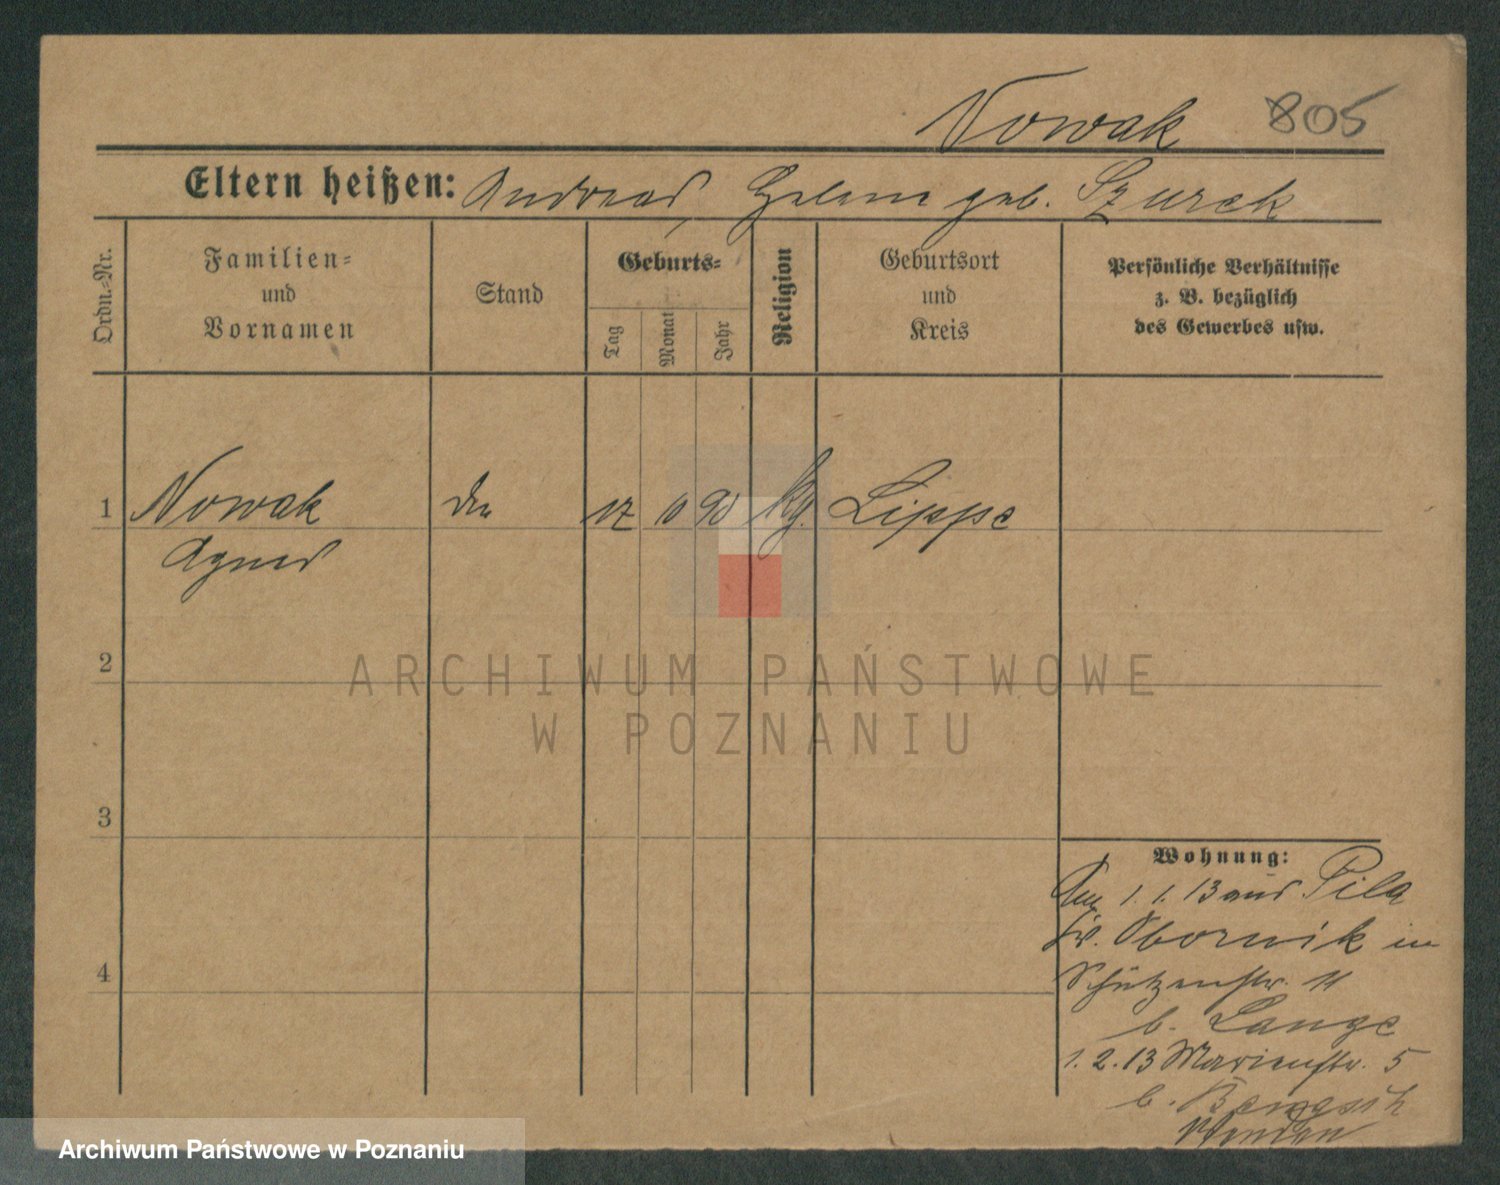 Nowak 805
Eltern heißen: Andreas, Helene geb. Szurek
Ordn.-Nr.
Familien-
und
Vornamen
Stand
Geburts-
Tag
Monat
Jahr
Religion
Geburtsort
und
Kreis
Persönliche Verhältnisse
z. B. bezüglich
des Gewerbes usw.
1 Nowak 17 10 90 kg. Lippe
Agnes
2
3
4
Wohnung:
Am 1. 1. 13 aus Pila
Kr. Obornik in
Schützenstr. 11
b. Lange
1. 2. 13 Marienstr. 5
b.
ARCHIWUM PAŃSTWOWE
W POZNANIU
Archiwum Państwowe w Poznaniu